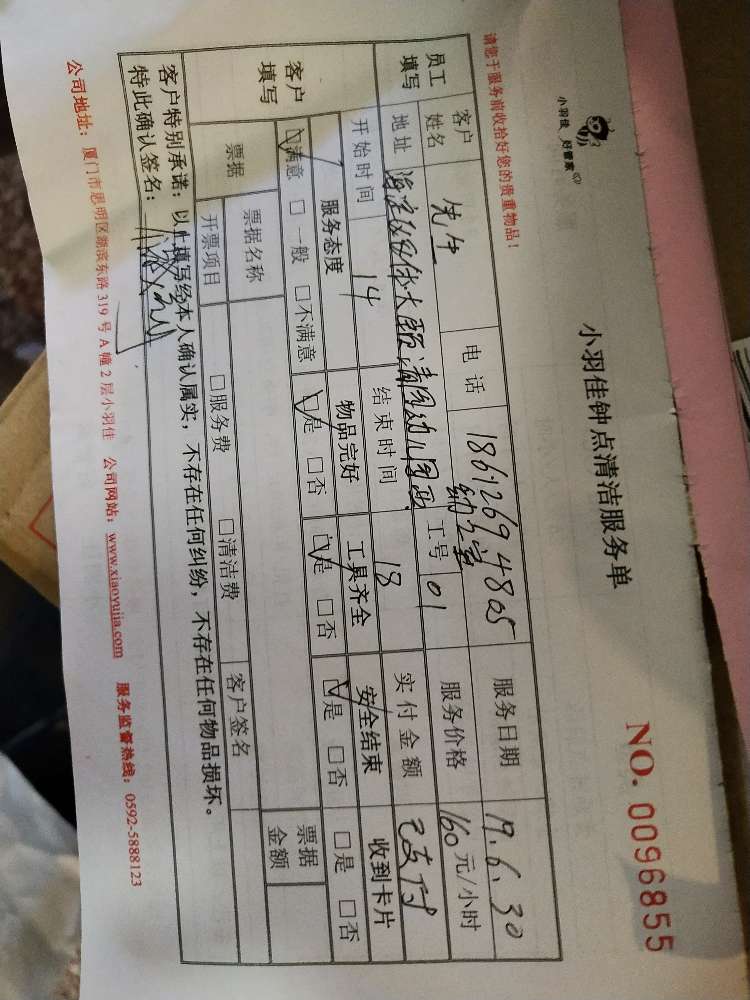 小羽佳 好管家
小羽佳钟点清洁服务单
请您于服务前收拾好您的贵重物品！
NO. 0096855
员工填写
客户姓名 先生 电话 18612694805 服务日期 19.6.30
地址 工号 01 服务价格 160元/小时
开始时间 14 结束时间 18 实付金额 已支付
客户填写
服务态度 物品完好 工具齐全 安全结束 收到卡片
☑满意 □一般 □不满意 ☑是 □否 ☑是 □否 ☑是 □否 □是 □否
票据 票据名称 票据金额
开票项目 □服务费 □清洁费 客户签名
客户特别承诺：以上填写经本人确认属实，不存在任何纠纷，不存在任何物品损坏。
特此确认签名：
公司地址：厦门市思明区湖滨东路319号A幢2层小羽佳 公司网站：www.xiaoyujia.com 服务监督热线：0592-5888123